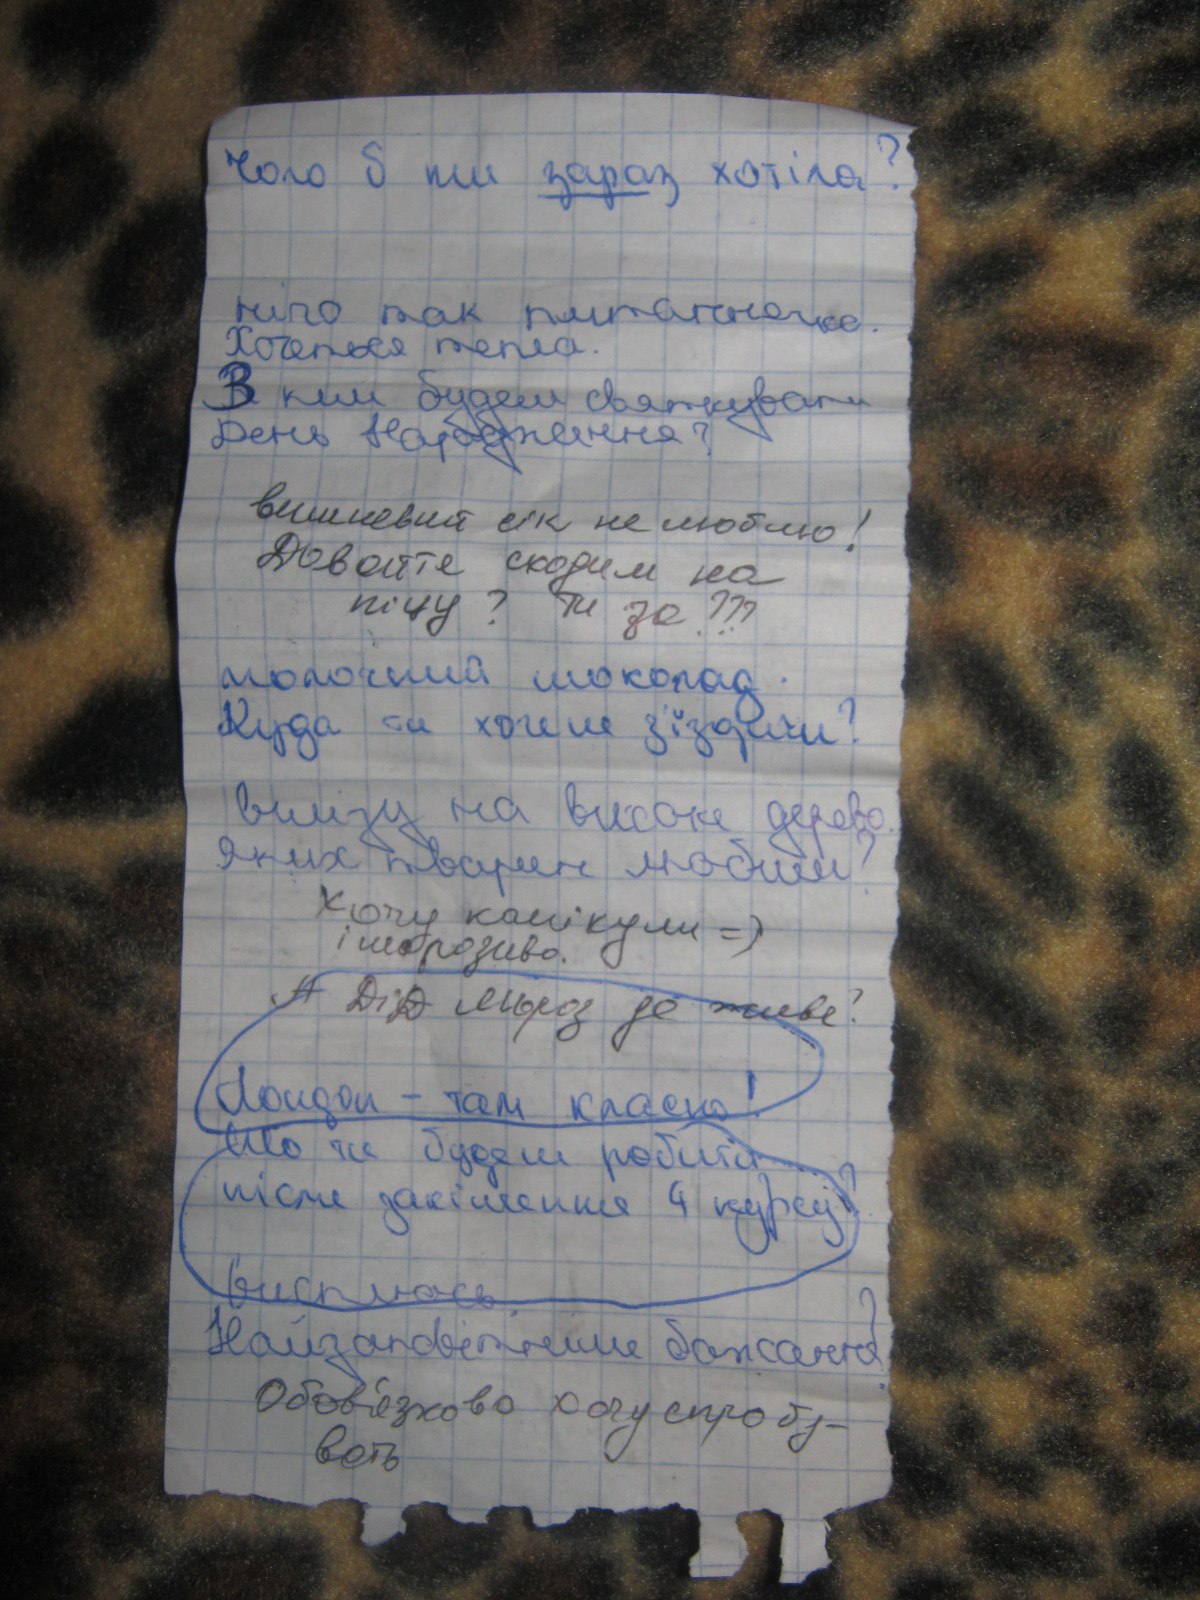 Чого б ти зараз хотіла?
нічо так питаннячко.
Хочеться тепла.
З ким будеш святкувати
День Народження?
вишневий сік не люблю!
Давайте сходим на
піцу? Ти за???
молочний шоколад.
Куда ти хочеш з'їздити?
вилізу на високе дерево.
Яких тварин любиш?
Хочу канікули =)
і морозиво.
А Дід Мороз де живе?
Лондон – там класно!
Що ти будеш робити
після закінчення 4 курсу?
висплюсь.
Найзаповітніше бажання?
Обов'язково хочу спробу-
вать